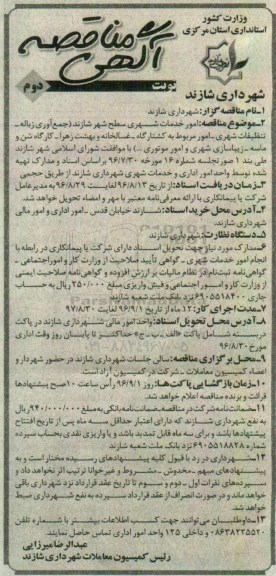 وزارت کشور
استانداری استان مرکزی
آگهی مناقصه
نوبت دوم
شهرداری شازند
۱-نام مناقصه گزار: شهرداری شازند
۲-موضوع مناقصه: امور خدمات شهری سطح شهر شازند (جمع‌آوری زباله-
تنظیفات شهری-امور مربوط به کشتارگاه-غسالخانه و بهشت زهرا-کارگاه شن و
ماسه-زیباسازی شهری و امور موتوری ...) با موافقت شورای اسلامی شهر شازند
طی بند ۱ صورتجلسه شماره ۱۶ مورخه ۹۶/۷/۳۰ بر اساس اسناد و مدارک تهیه
شده توسط واحد امور اداری و خدمات شهری شهرداری شازند از طریق حجمی
۳-زمان دریافت اسناد: از تاریخ ۹۶/۸/۱۳ لغایت ۹۶/۸/۲۹ به مدیرعامل
شرکت یا پیمانکاری با ارائه معرفی‌نامه معتبر با مهر و امضاء تحویل خواهد شد.
۴-آدرس محل خرید اسناد: شازند خیابان قدس-امور اداری و امور مالی
شهرداری شازند.
۵-دستگاه نظارت: شهرداری شازند
۶-مدارک مورد نیاز جهت تحویل اسناد دارای شرکت یا پیمانکاری در رابطه با
انجام امور خدمات شهری-گواهی تأیید صلاحیت از وزارت کار و امور اجتماعی-
گواهی‌نامه ثبت‌نام در نظام مالیات بر ارزش افزوده و گواهی‌نامه صلاحیت ایمنی
از وزارت کار و امور اجتماعی و فیش واریزی مبلغ ۲۵۰/۰۰۰ ریال به حساب
جاری ۶۹۰۵۵۱۸۴۰۰ نزد بانک ملت شعبه شازند
۷-مدت اجرای کار: ۱۲ ماه از تاریخ ۹۶/۹/۱ لغایت ۹۷/۸/۳۰
۸-آدرس محل تحویل اسناد: واحد امور مالی شهرداری شازند در پاکت
دربسته شامل پاکت «الف-ب-ج» حداکثر تا پایان روز وقت اداری
مورخ ۹۶/۸/۳۰
۹-محل برگزاری مناقصه: سالن جلسات شهرداری شازند در حضور شهردار و
اعضاء کمیسیون معاملات-شرکت در کمیسیون آزاد است.
۱۰-زمان بازگشایی پاکت‌ها: روز ۹۶/۹/۱ رأس ساعت ۱۰ صبح پیشنهادها
قرائت و برنده مناقصه اعلام خواهد شد.
۱۱-ضمانت‌نامه شرکت در مناقصه، ضمانت‌نامه بانکی به مبلغ ۹۴۰/۰۰۰/۰۰۰ ریال
به نفع شهرداری شازند که دارای اعتبار حداقل سه ماه پس از تاریخ افتتاح
پیشنهادها باشد و برای سه ماه قابل تمدید باشد و یا واریزی نقدی بحساب سپرده
شماره ۶۹۰۵۵۱۸۸۲۸ نزد بانک ملت شعبه شازند
۱۲-شهرداری در رد یا قبول کلیه پیشنهادهای رسیده مختار است و به
پیشنهادهای مبهم-مخدوش-مشروط و غیرخوانا ترتیب اثر نخواهد داد و
سپرده‌های نفرات اول-دوم و سوم تا تاریخ عقد قرارداد نزد شهرداری باقی
خواهد ماند و در صورت انصراف از عقد قرارداد سپرده به نفع شهرداری ضبط
خواهد شد.
۱۳-داوطلبان می‌توانند جهت کسب اطلاعات بیشتر با شماره تلفن
۰۸۶۳۸۲۲۵۵۲۰ و داخلی ۱۲۵ واحد امور اداری تماس حاصل نمایند.
عبدالرضا میرزایی
رئیس کمیسیون معاملات شهرداری شازند